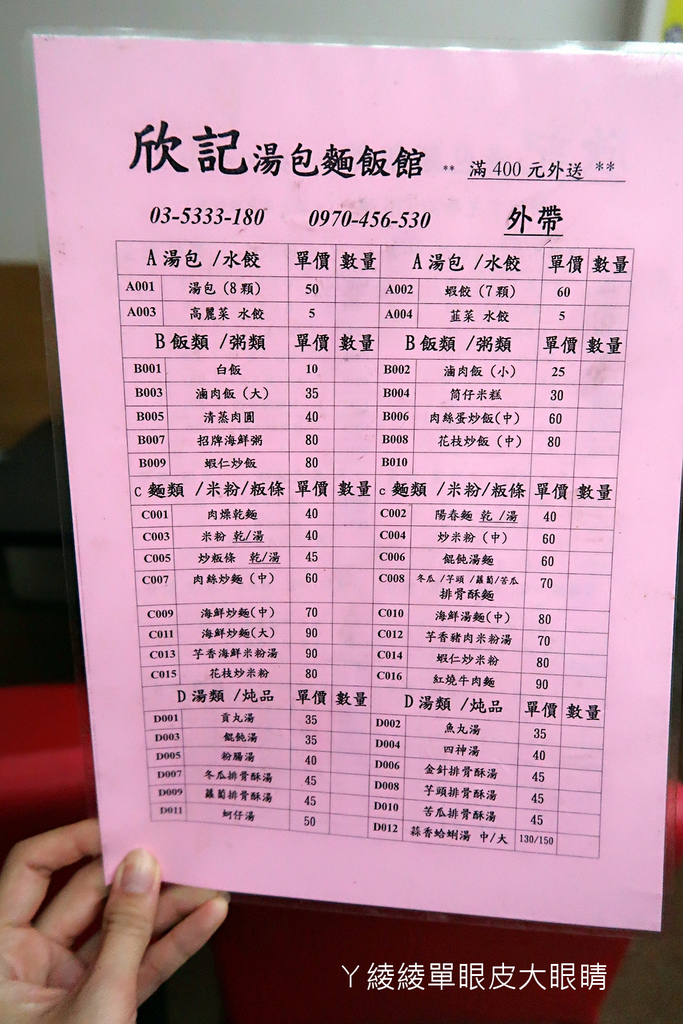 欣記湯包麵飯館 ** 滿400元外送 **
03-5333-180 0970-456-530 外帶
A湯包/水餃 單價 數量 A湯包/水餃 單價 數量
A001 湯包(8顆) 50 A002 蝦餃(7顆) 60
A003 高麗菜 水餃 5 A004 韮菜 水餃 5
B飯類/粥類 單價 數量 B飯類/粥類 單價 數量
B001 白飯 10 B002 滷肉飯(小) 25
B003 滷肉飯(大) 35 B004 筒仔米糕 30
B005 清蒸肉圓 40 B006 肉絲蛋炒飯(中) 60
B007 招牌海鮮粥 80 B008 花枝炒飯(中) 80
B009 蝦仁炒飯 80 B010
C麵類/米粉/粄條 單價 數量 C麵類/米粉/粄條 單價 數量
C001 肉燥乾麵 40 C002 陽春麵 乾/湯 40
C003 米粉 乾/湯 40 C004 炒米粉(中) 60
C005 炒粄條 乾/湯 45 C006 餛飩湯麵 60
C007 肉絲炒麵(中) 60 C008 冬瓜/芋頭/蘿蔔/苦瓜 70
排骨酥麵
C009 海鮮炒麵(中) 70 C010 海鮮湯麵(中) 80
C011 海鮮炒麵(大) 90 C012 芋香豬肉米粉湯 70
C013 芋香海鮮米粉湯 90 C014 蝦仁炒米粉 80
C015 花枝炒米粉 80 C016 紅燒牛肉麵 90
D湯類/炖品 單價 數量 D湯類/炖品 單價 數量
D001 貢丸湯 35 D002 魚丸湯 35
D003 餛飩湯 35 D004 四神湯 40
D005 粉腸湯 40 D006 金針排骨酥湯 45
D007 冬瓜排骨酥湯 45 D008 芋頭排骨酥湯 45
D009 蘿蔔排骨酥湯 45 D010 苦瓜排骨酥湯 45
D011 蚵仔湯 50 D012 蒜香蛤蜊湯 中/大 130/150
ㄚ綾綾單眼皮大眼睛